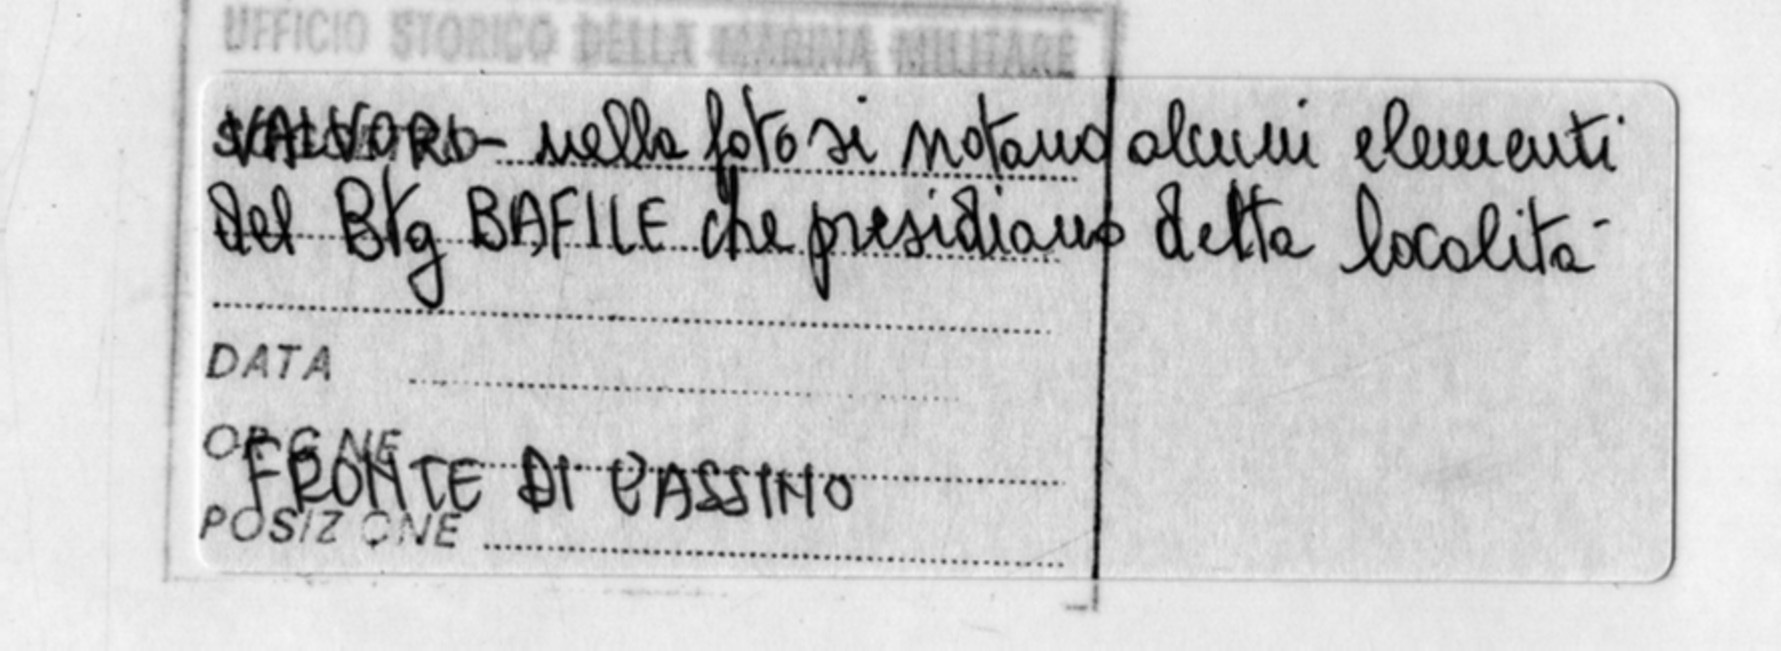 UFFICIO STORICO DELLA MARINA MILITARE
VALVORI - nella foto si notano alcuni elementi
del Btg BAFILE che presidiano detta località
DATA
ORIGINE
FRONTE DI CASSINO
POSIZIONE